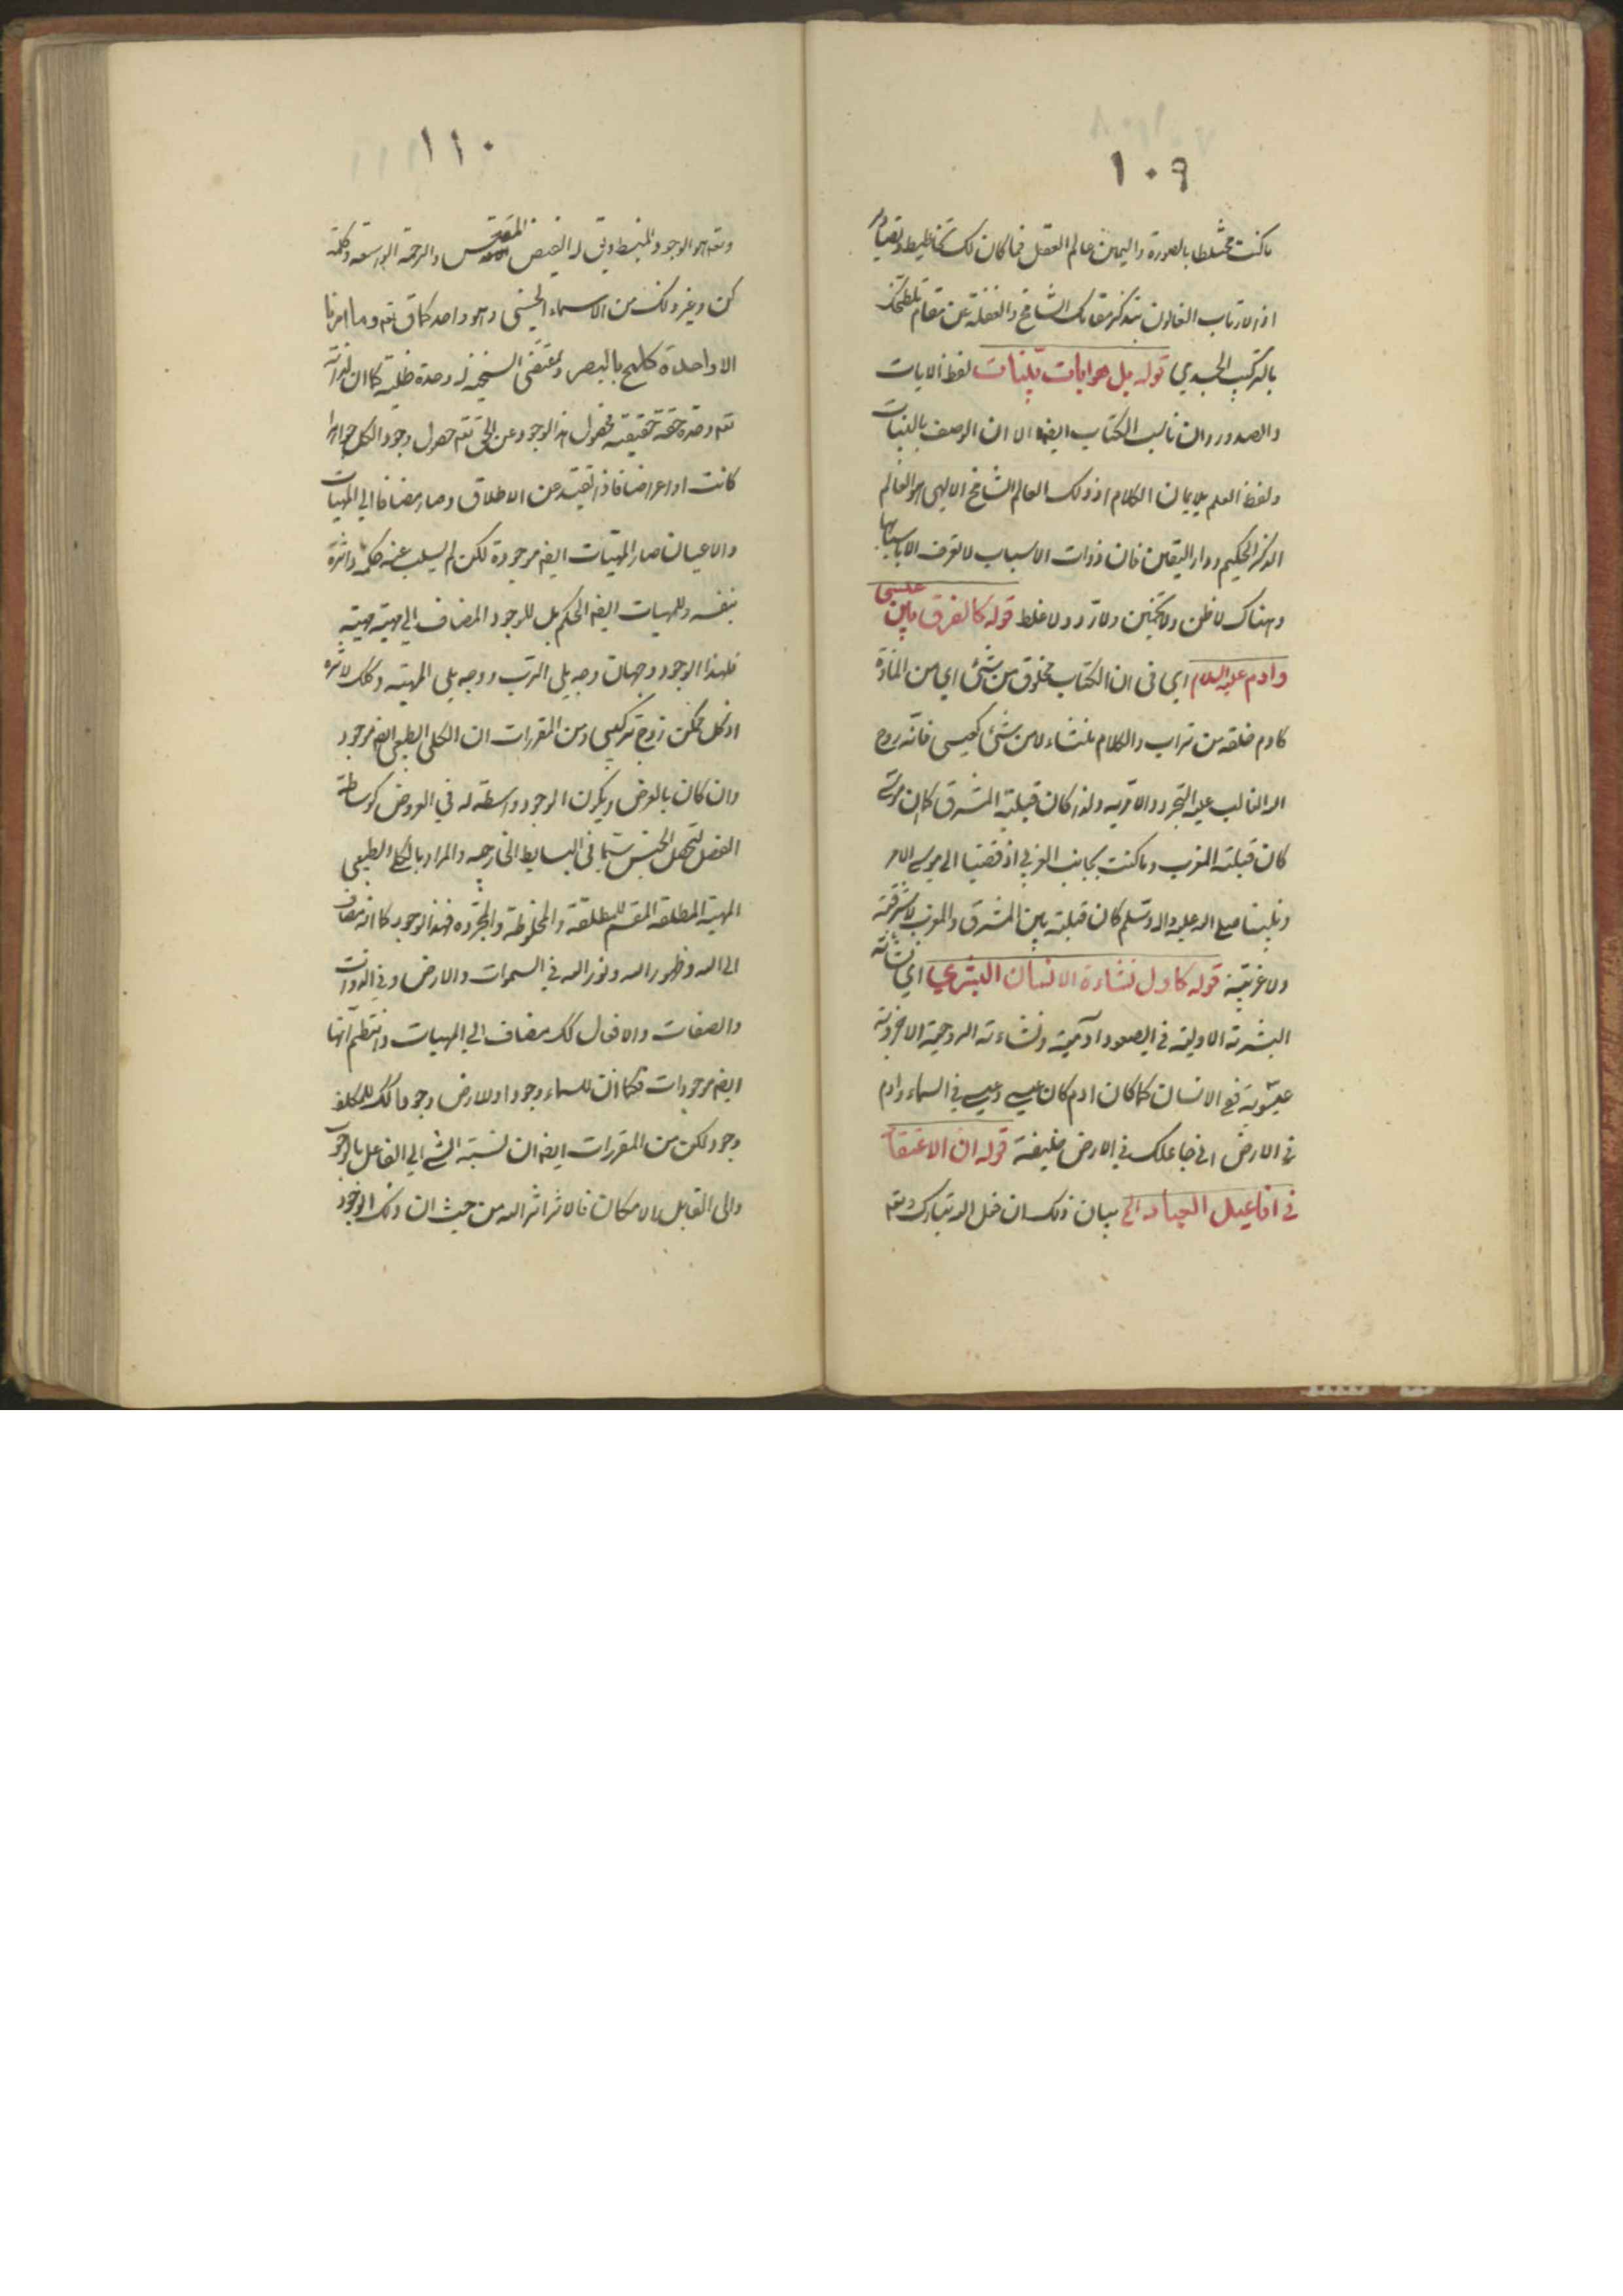 ١٠٩
ما كنت مختلطا بالصورة واليمين عالم العقل فما كان لك تخاطيط وتصاوير
اذ الارتاب الغالون بتذكر مقامك الشامخ والغفلة عن مقام تلطخك
بالتركيب الجسدي قوله بل هو ايات بينات لفظ الايات
والصدور وان ناسب الكتاب ايضا الا ان الوصف بالبينات
ولفظ العلم يلايمان الكلام اذ ذلك العالم الشامخ الالهي هو العالم
الذكر الحكيم ودار اليقين فان ذوات الاسباب لا تعرف الا باسبابها
وهناك لا ظن ولا تخمين ولا تردد ولا غلط قوله كالفرق بين عيسى
وادم عليه السلام اي في ان الكتاب مخلوق من شئ اي من المادة
كادم خلقه من تراب والكلام منشاء لا من شئ كعيسى فانه روح
الله الغالب عليه التجرد والامرية ولذا كان قبلته المشرق كما ان موسى
كان قبلته المغرب وما كنت بجانب الغربي اذ قضينا الى موسى الامر
ونبينا صلى الله عليه واله وسلم كان قبلته بين المشرق والمغرب لا شرقية
ولا غربية قوله كاول نشاءة الانسان البشري اي نشاته
البشرية الاولية في الصعود ادمية ونشاءته الروحية الاخروية
عيسوية ففي الانسان كما كان ادم كان عيسى وعيسى في السماء وادم
في الارض اني جاعلك في الارض خليفة قوله ان الاعتقاد
في افاعيل العباد الخ بيان ذلك ان فعل الله تبارك وتعه
١١٠
وتعه هو الوجود المنبسط ويق له الفيض المقدس والرحمة الواسعة وكلمة
كن وغير ذلك من الاسماء الحسنى وهو واحد كما ق تعه وما امرنا
الا واحدة كلمح بالبصر وبمقتضى السنخية له وحدة ظلية كما ان لذاته
تعه وحدة حقة حقيقية فحصول هذا الوجود عن الحق تعه حصول وجود الكل جواهرا
كانت او اعراضا فاذا تقيد عن الاطلاق وصار مضافا الى المهيات
والاعيان صار المهيات ايضه موجودة لكن لم يسلب عنه حكمه واثره
بنفسه وللمهيات ايضه الحكم بل للوجود المضاف الى مهية مهية
فلهذا الوجود وجهان وجه يلي الرب ووجه يلي المهية وكك لاثره
اذ كل ممكن زوج تركيبي ومن المقررات ان الكلي الطبيعي ايضه موجود
وان كان بالعرض ويكون الوجود واسطة له في العروض كوساطة
الفصل لتحصل الجنس سيما في البسايط الخارجية والمراد بالكلي الطبيعي
المهية المطلقة المقسم للمطلقة والمخلوطة والمجردة فهذا الوجود كما انه مضاف
الى الله وظهور الله ونور الله في السموات والارض وفي الذوات
والصفات والافعال كك مضاف الى المهيات وانتظم انها
ايضه موجودات فكما ان للسماء وجودا وللارض وجودا كك للمكلف
وجود لكن من المقررات ايضه ان نسبة الشئ الى الفاعل بالوجوب
والى القابل بالامكان فالاثر اثر الله من حيث ان ذلك الوجود